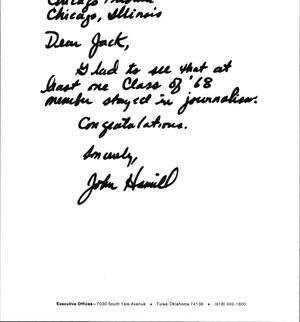 Chicago Tribune
Chicago, Illinois
Dear Jack,
Glad to see that at
least one Class of '68
member stayed in journalism.
Congratulations.
Sincerely,
John Hamill
Executive Offices—7030 South Yale Avenue • Tulsa, Oklahoma 74136 • (918) 492-1600